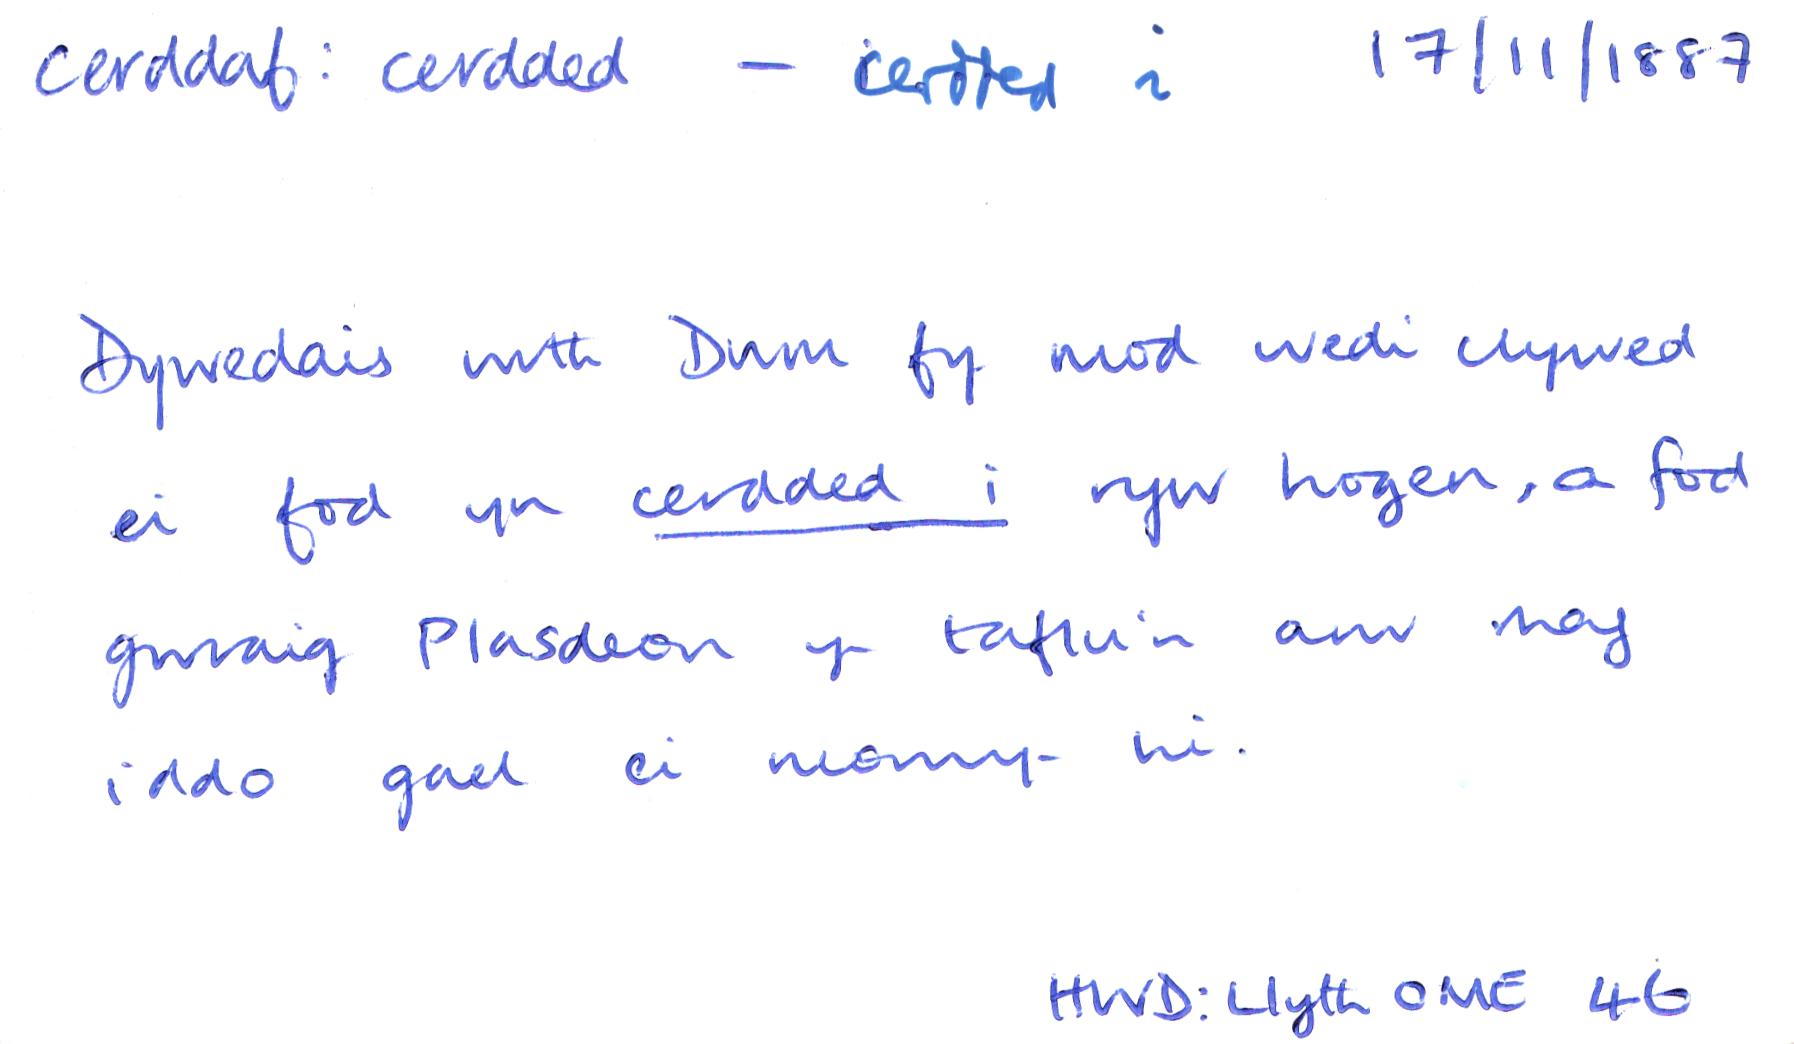 cerddaf: cerdded – cerdded i 17/11/1887
Dywedais wrth Dwm fy mod wedi clywed
ei fod yn cerdded i ryw hogen, a fod
gwraig Plasdeon yn taflu'n arw nag
iddo gael ei morwyn hi.
HWD: Llyth OME 46